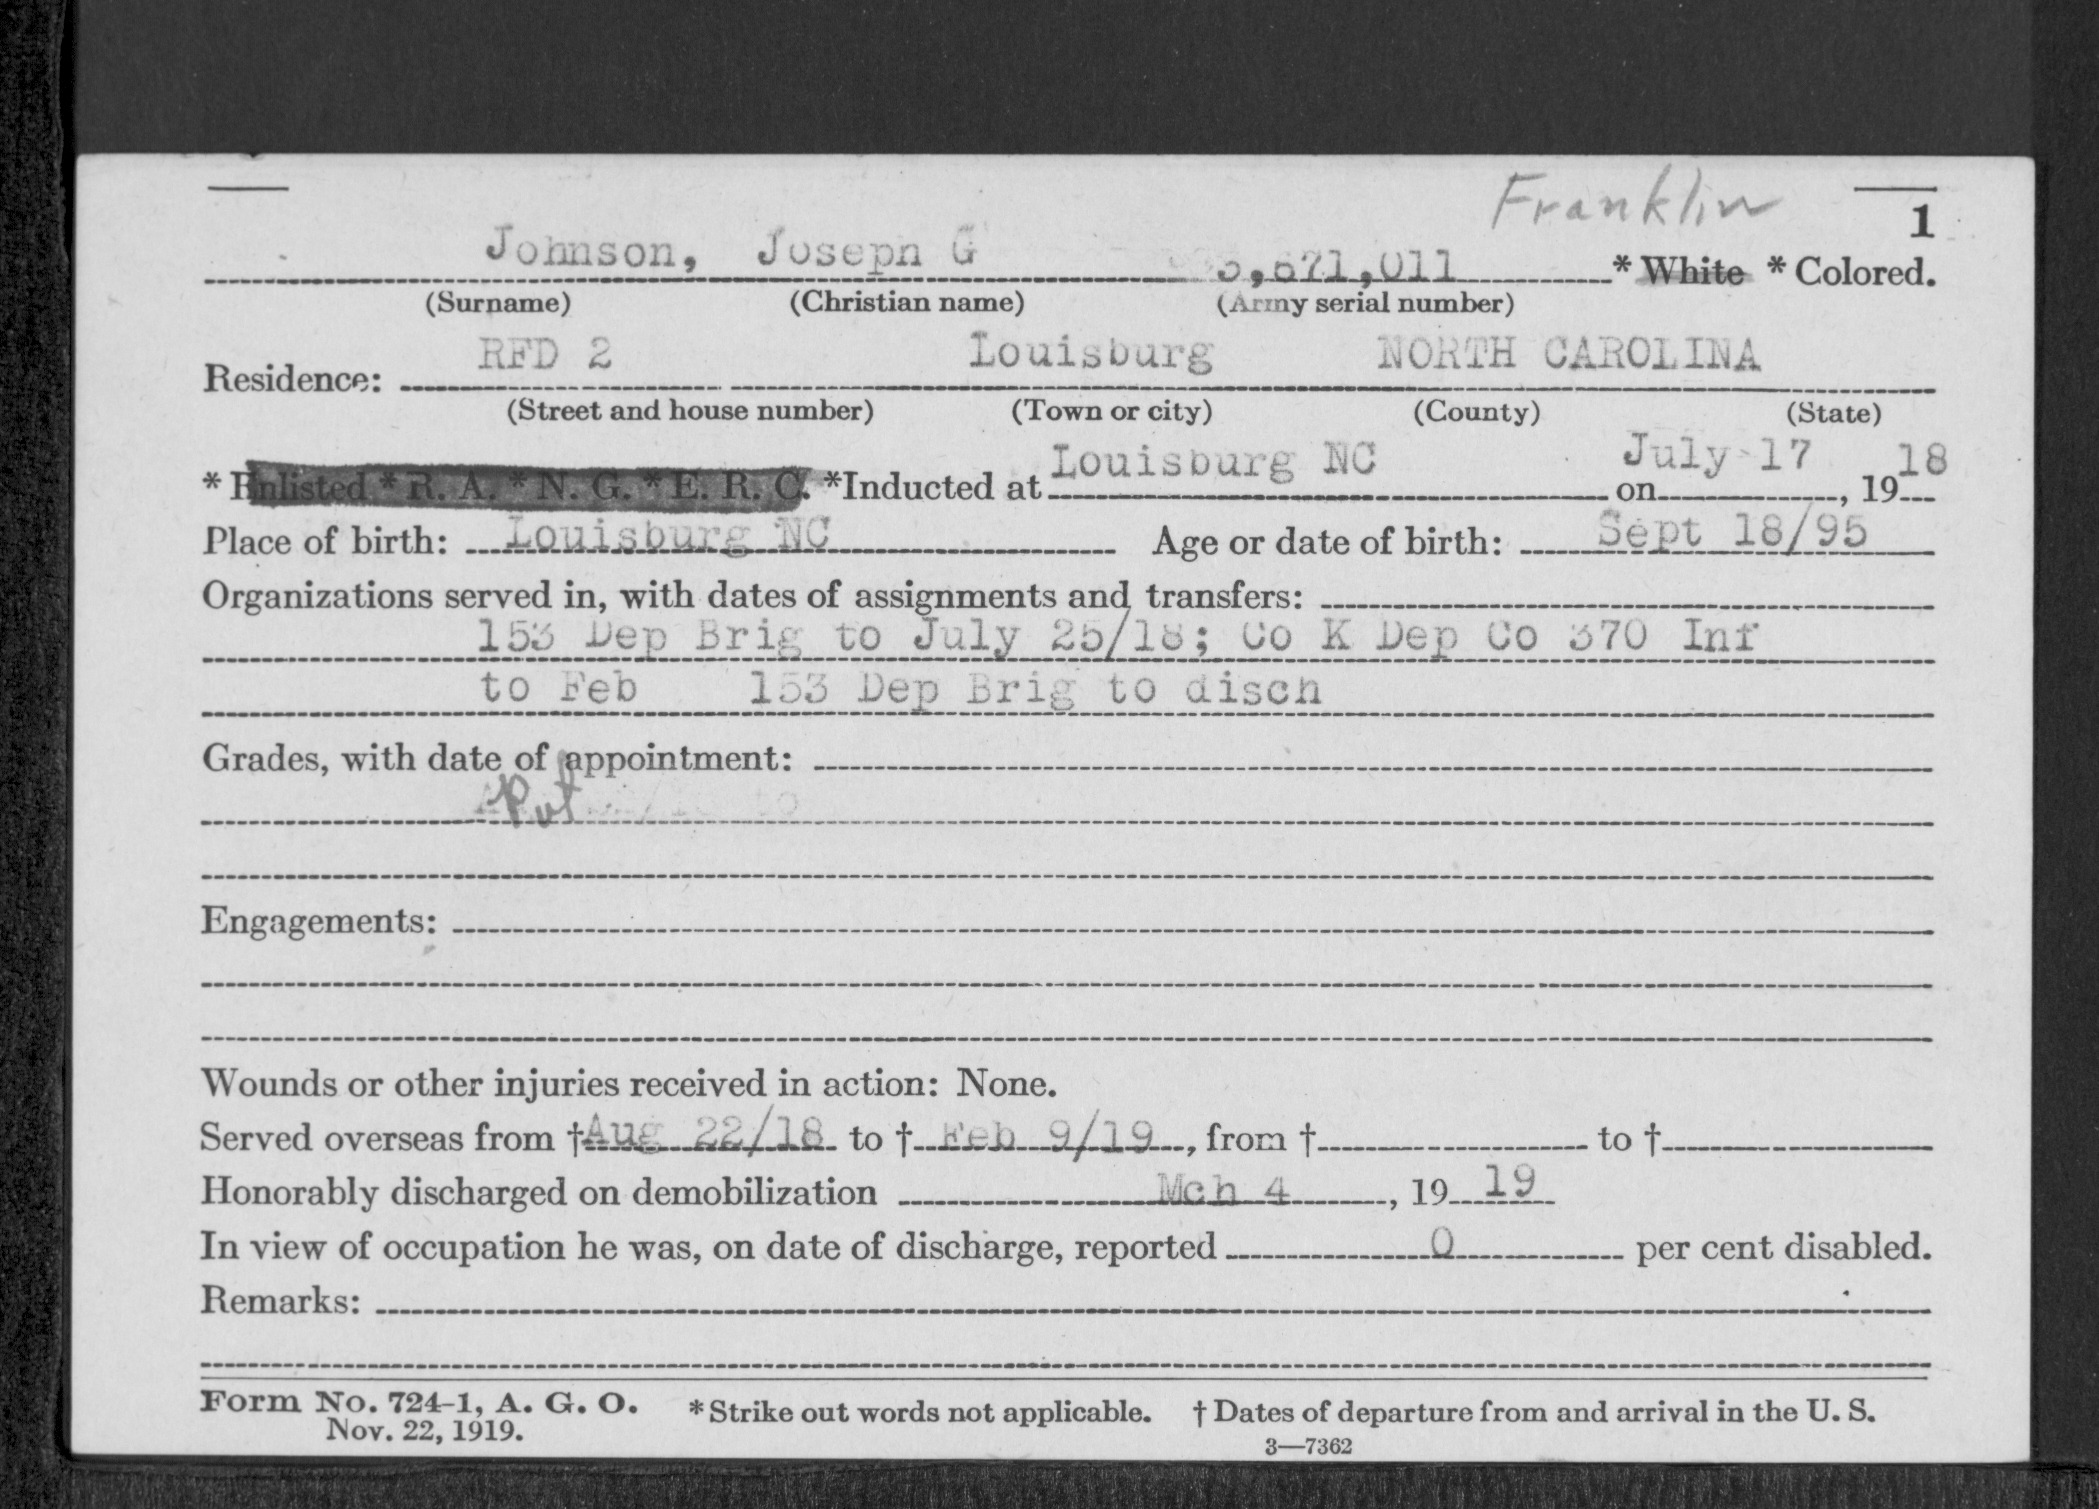 Franklin
1
Johnson, Joseph G 3,671,011 * White * Colored.
(Surname) (Christian name) (Army serial number)
Residence: RFD 2 Louisburg NORTH CAROLINA
(Street and house number) (Town or city) (County) (State)
* Enlisted * R. A. * N. G. * E. R. C. *Inducted at Louisburg NC on July 17, 1918
Place of birth: Louisburg NC Age or date of birth: Sept 18/95
Organizations served in, with dates of assignments and transfers:
153 Dep Brig to July 25/18; Co K Dep Co 370 Inf
to Feb 153 Dep Brig to disch
Grades, with date of appointment:
Pvt
Engagements:
Wounds or other injuries received in action: None.
Served overseas from †Aug 22/18 to † Feb 9/19, from † to †
Honorably discharged on demobilization Mch 4, 1919
In view of occupation he was, on date of discharge, reported 0 per cent disabled.
Remarks:
Form No. 724-1, A. G. O. *Strike out words not applicable. † Dates of departure from and arrival in the U. S.
Nov. 22, 1919.
3—7362